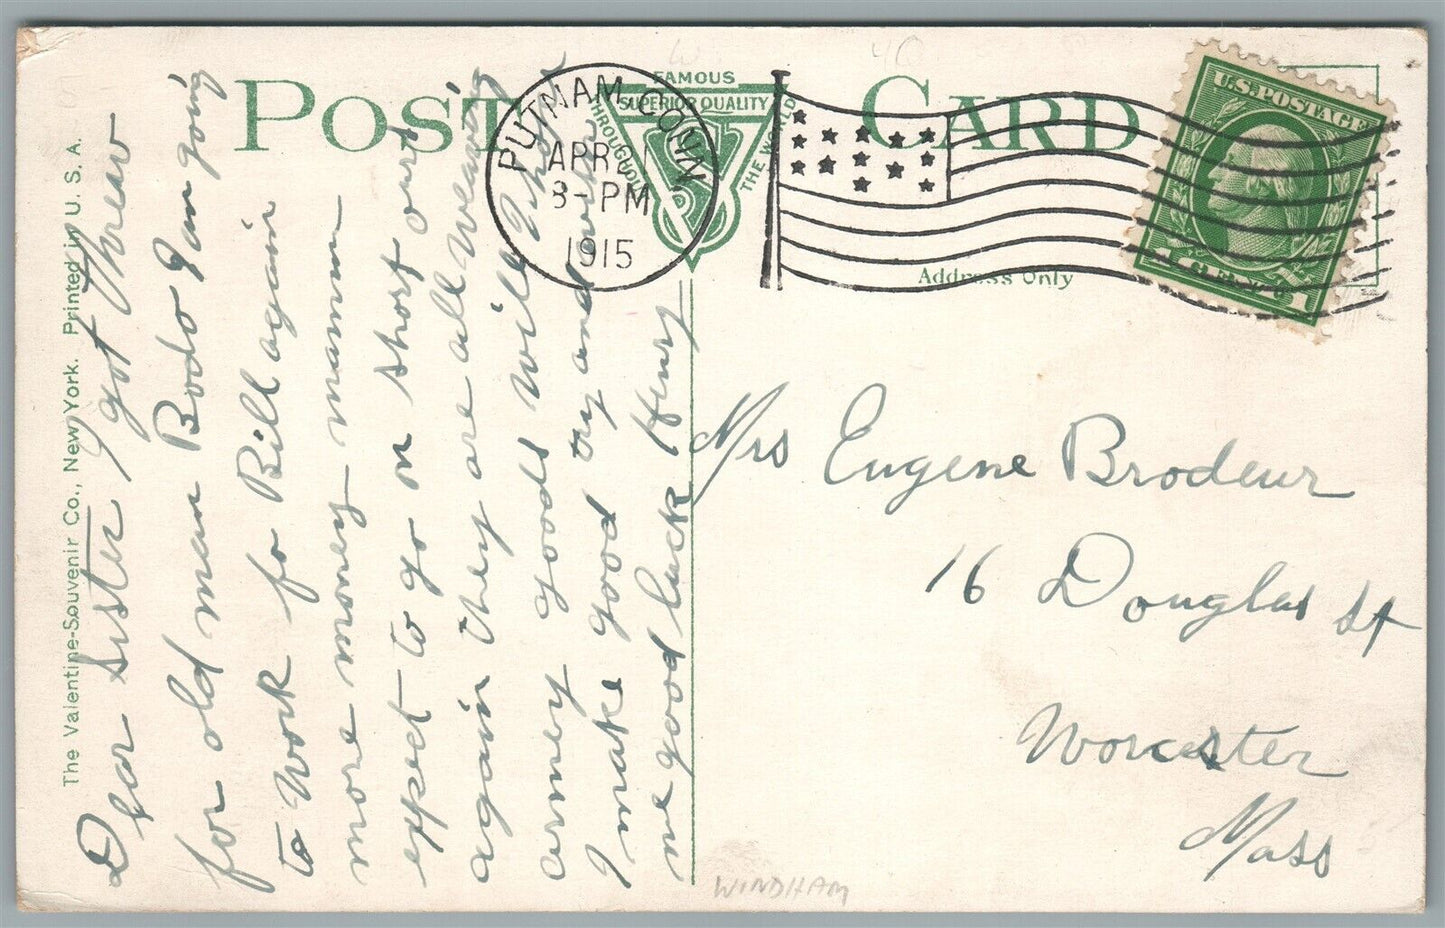 POST CARD
FAMOUS
SUPERIOR QUALITY
THROUGHOUT
THE WORLD
PUTNAM CONN
APR 1
8-PM
1915
U.S. POSTAGE
1 CENT 1
Address Only
The Valentine-Souvenir Co., New York. Printed in U. S. A.
Dear Sister I got threw
for old man Bodo I am going
to work fo Bill again
more money mamm
expect to go on short
again they are all weaving
army goods will I hope
I make good try and
me good luck Henry
Mrs Eugene Brodeur
16 Douglas St
Worcester
Mass
WINDHAM